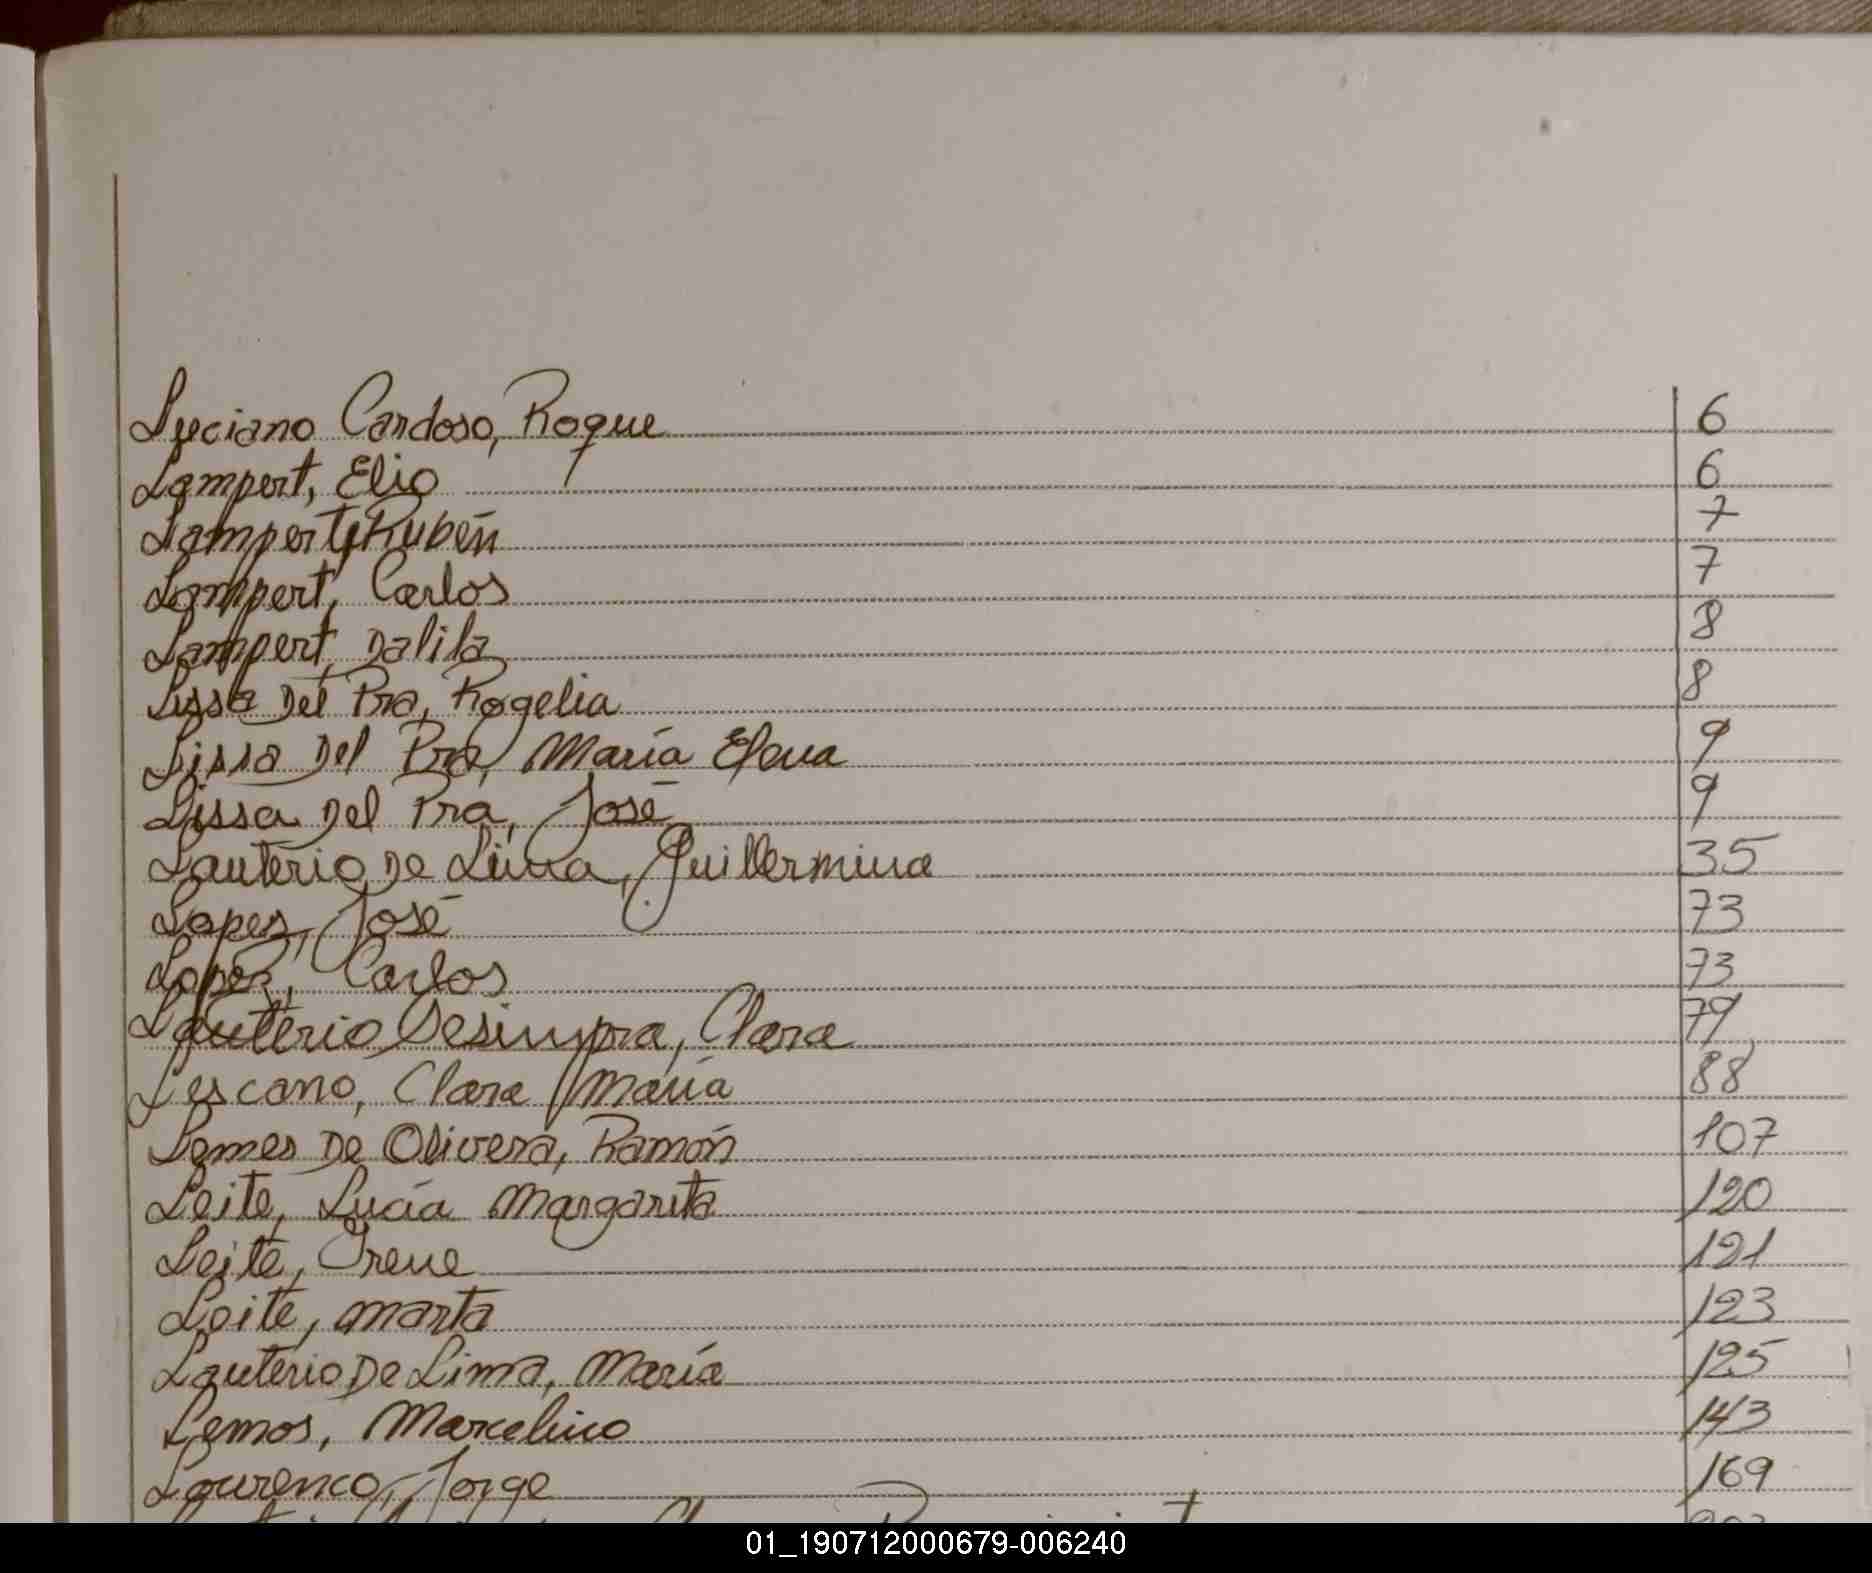 Luciano Cardoso, Roque 6
Lampert, Elio 6
Lampert, Rubén 7
Lampert, Carlos 7
Lampert, Dalila 8
Lissa Del Pra, Rogelia 8
Lissa Del Pra, María Elena 9
Lissa Del Pra, José 9
Lauterio De Lima, Guillermina 35
Lopez, José 73
Lopez, Carlos 73
Lauterio Desimpra, Clara 79
Lescano, Clara María 88
Lemes De Olivera, Ramón 107
Leite, Lucía Margarita 120
Leite, Irene 121
Leite, Marta 123
Lauterio De Lima, María 125
Lemos, Marcelino 143
Lourenco, Jorge 169
01_190712000679-006240